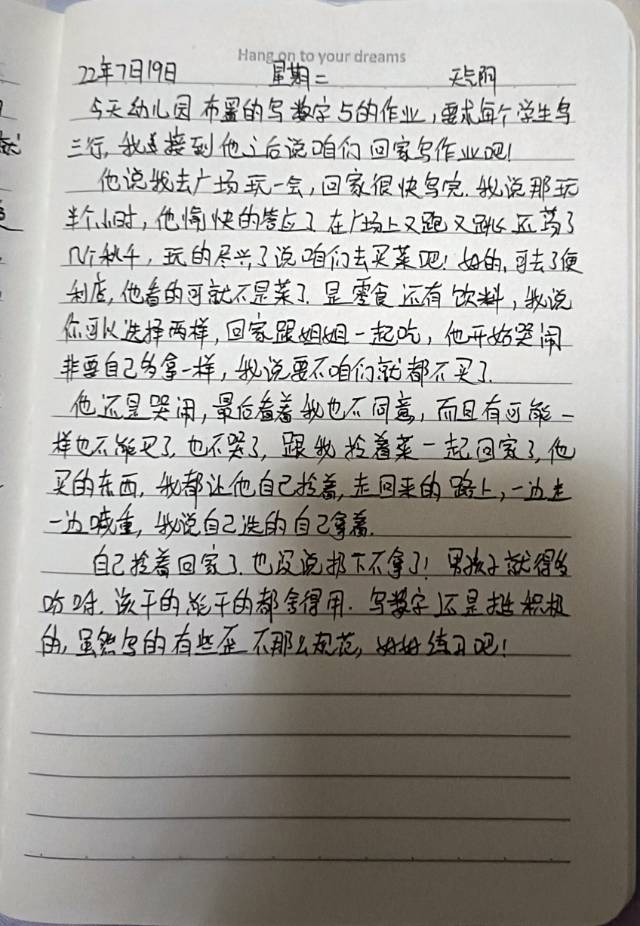 Hang on to your dreams
22年7月19日 星期二 天气阴
今天幼儿园布置的写数字5的作业,要求每个学生写
三行,我去接到他之后说咱们回家写作业吧!
他说我去广场玩一会,回家很快写完.我说那玩
半个小时,他愉快的答应了在广场上又跑又跳还荡了
几下秋千,玩的尽兴了说咱们去买菜吧!好的,可去了便
利店,他看的可就不是菜了.是零食还有饮料,我说
你可以选择两样,回家跟姐姐一起吃,他开始哭闹
非要自己多拿一样,我说要不咱们就都不买了.
他还是哭闹,最后看着我也不同意,而且有可能一
样也不能买了,也不哭了,跟我拎着菜一起回家了,他
买的东西,我都让他自己拎着,走回来的路上,一边走
一边喊重,我说自己选的自己拿着.
自己拎着回家了.也没说扔下不拿了!男孩子就得多
吩咐.该干的能干的都舍得用.写数字还是挺积极
的,虽然写的有些歪不那么规范,好好练习吧!